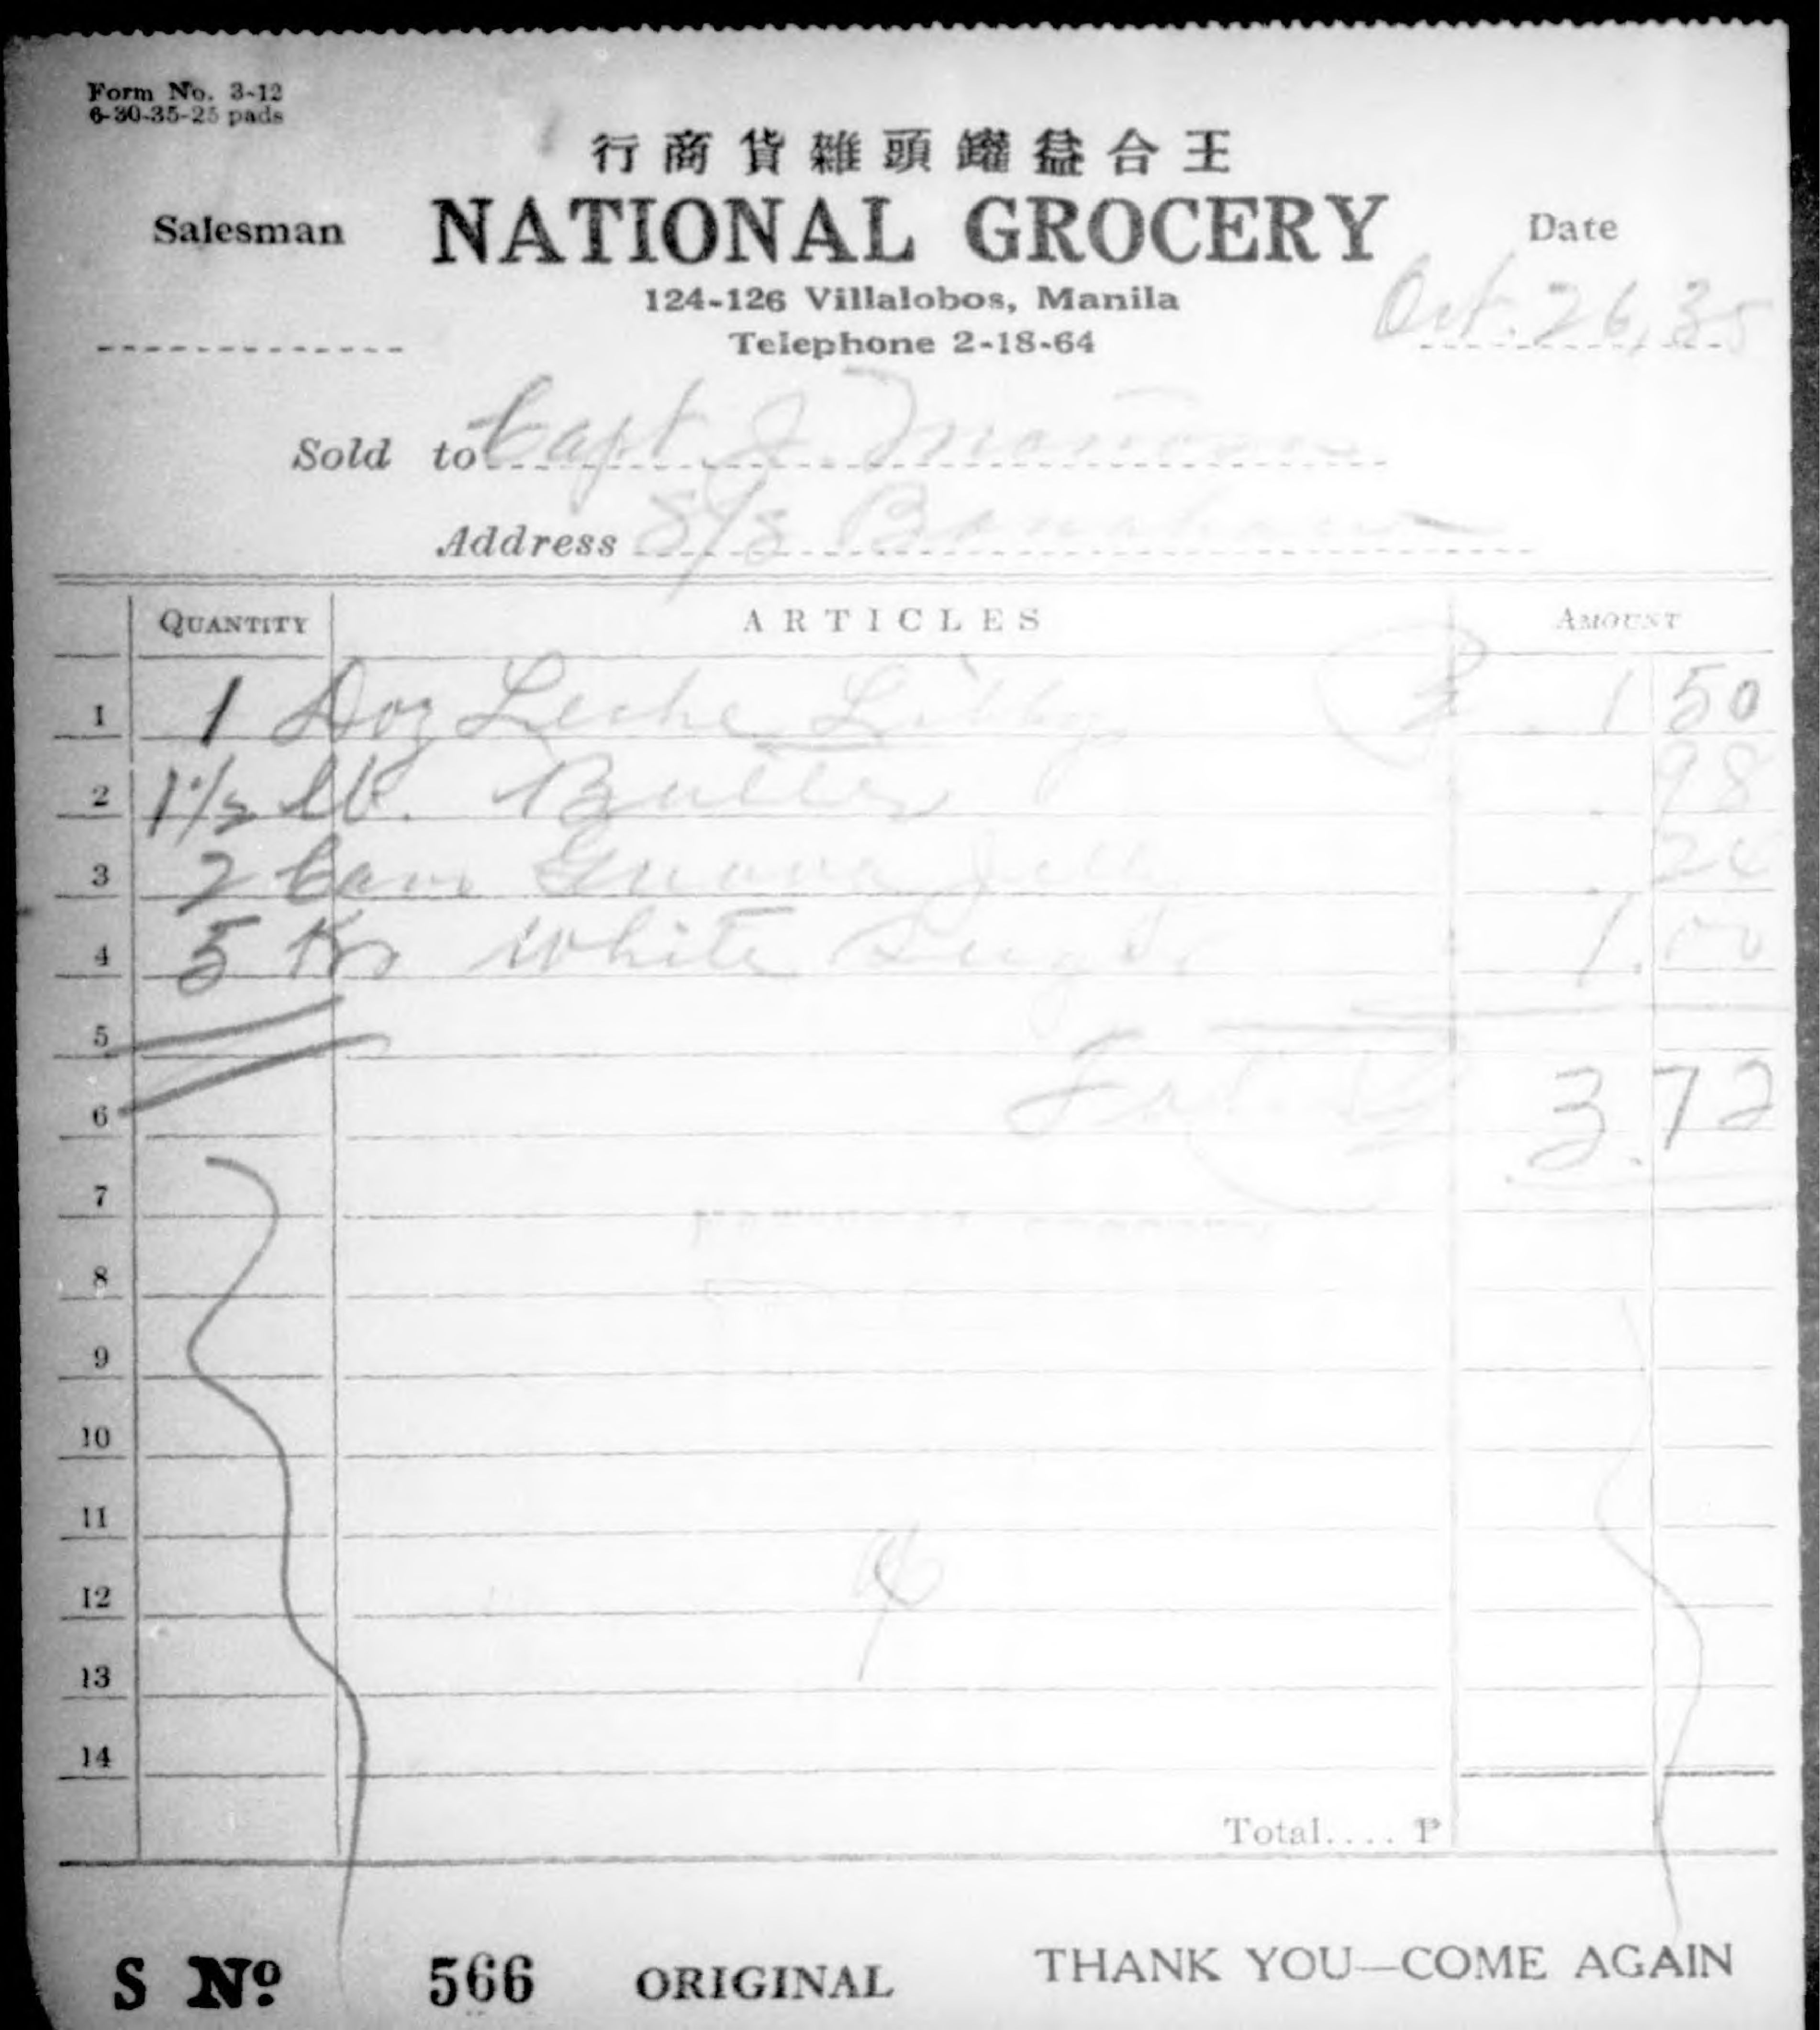 Form No. 3-12
6-30-35-25 pads
行商貨雜頭罐益合王
Salesman NATIONAL GROCERY Date
124-126 Villalobos, Manila
Oct. 26, 35
Telephone 2-18-64
Sold to Capt J.
Address S/S Banahaw
QUANTITY ARTICLES AMOUNT
1 1 Doz Leche Libby ₱ 1 50
2 1 1/2 lb. Butter .98
3 2 Cans Guava Jelly .24
4 5 Ks White Sugar 1.00
5
6 Total ₱ 3.72
7
8
9
10
11
12
13
14
Total.... ₱
S Nº 566 ORIGINAL THANK YOU—COME AGAIN